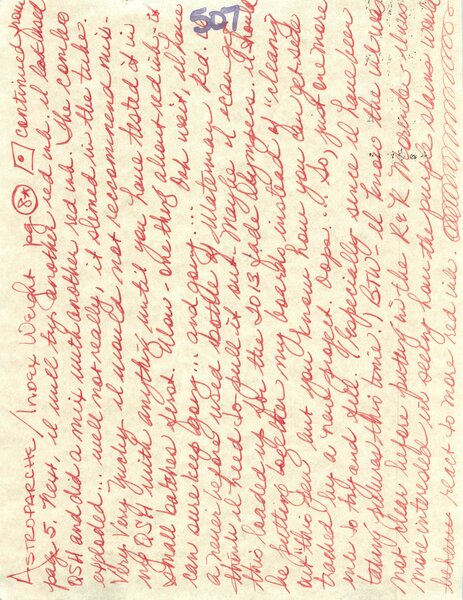 507
ASTROPARCHE / Inoex Weight pg 8* continued from
page 5. Next, I will try another red ink. I last used
QSH and did a mix with another red ink. The combo
exploded... well not really, it slimed in the tube.
Very Very yucky. I would not recommend mix-
ing QSH with anything until you have tested it in
small batches first. Wow - one thing about red ink is
can sure keep going... and going... Oh wait, I have
a never before used bottle of Waterman Red. I
think I need to pull it out. Maybe I can get
this loaded up for the 2013 Mad Olympics. I should
be putting together my books instead of "cleaning
out" this pens but you know how you can get side
tracked by a new project. Oops... So, just one more
one to try and find. (Especially since I have been
taking photos this time.) BTW - I knew the ink was
not clear before putting in the R&K Morinda. It was
more interesting in seeing how the purple stains would
react to more red ink.